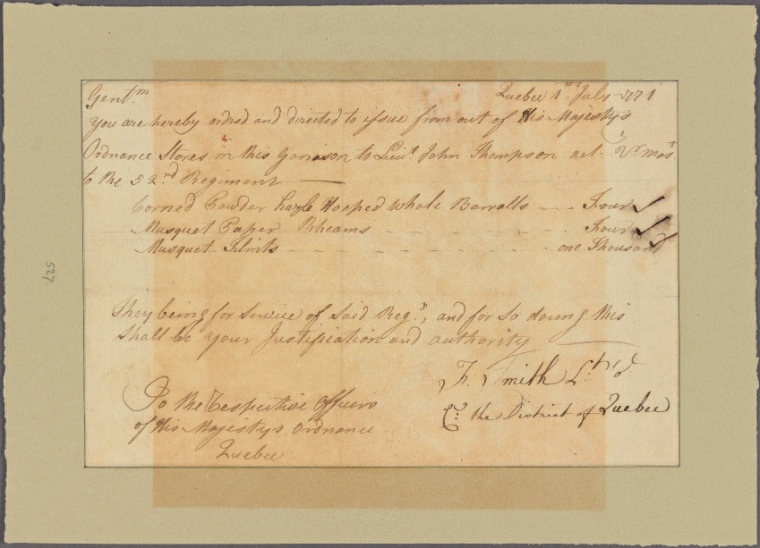 Quebec 1st July 1771
Gentm
You are hereby ordred and directed to issue from out of His Majestys
Ordnance Stores in this Garrison to Lieut John Thompson act. Qr Mastr
to the 52nd Regiment
Corned Powder Large Hooped Whole Barralls Four
Musquet Paper Rheams Four
Musquet Flints one Thousand
They being for Service of Said Regt, and for so doing this
Shall be your Justification and authority
F. Smith Lt
Cr the District of Quebec
To the Respective Officers
of His Majestys Ordnance
Quebec
527